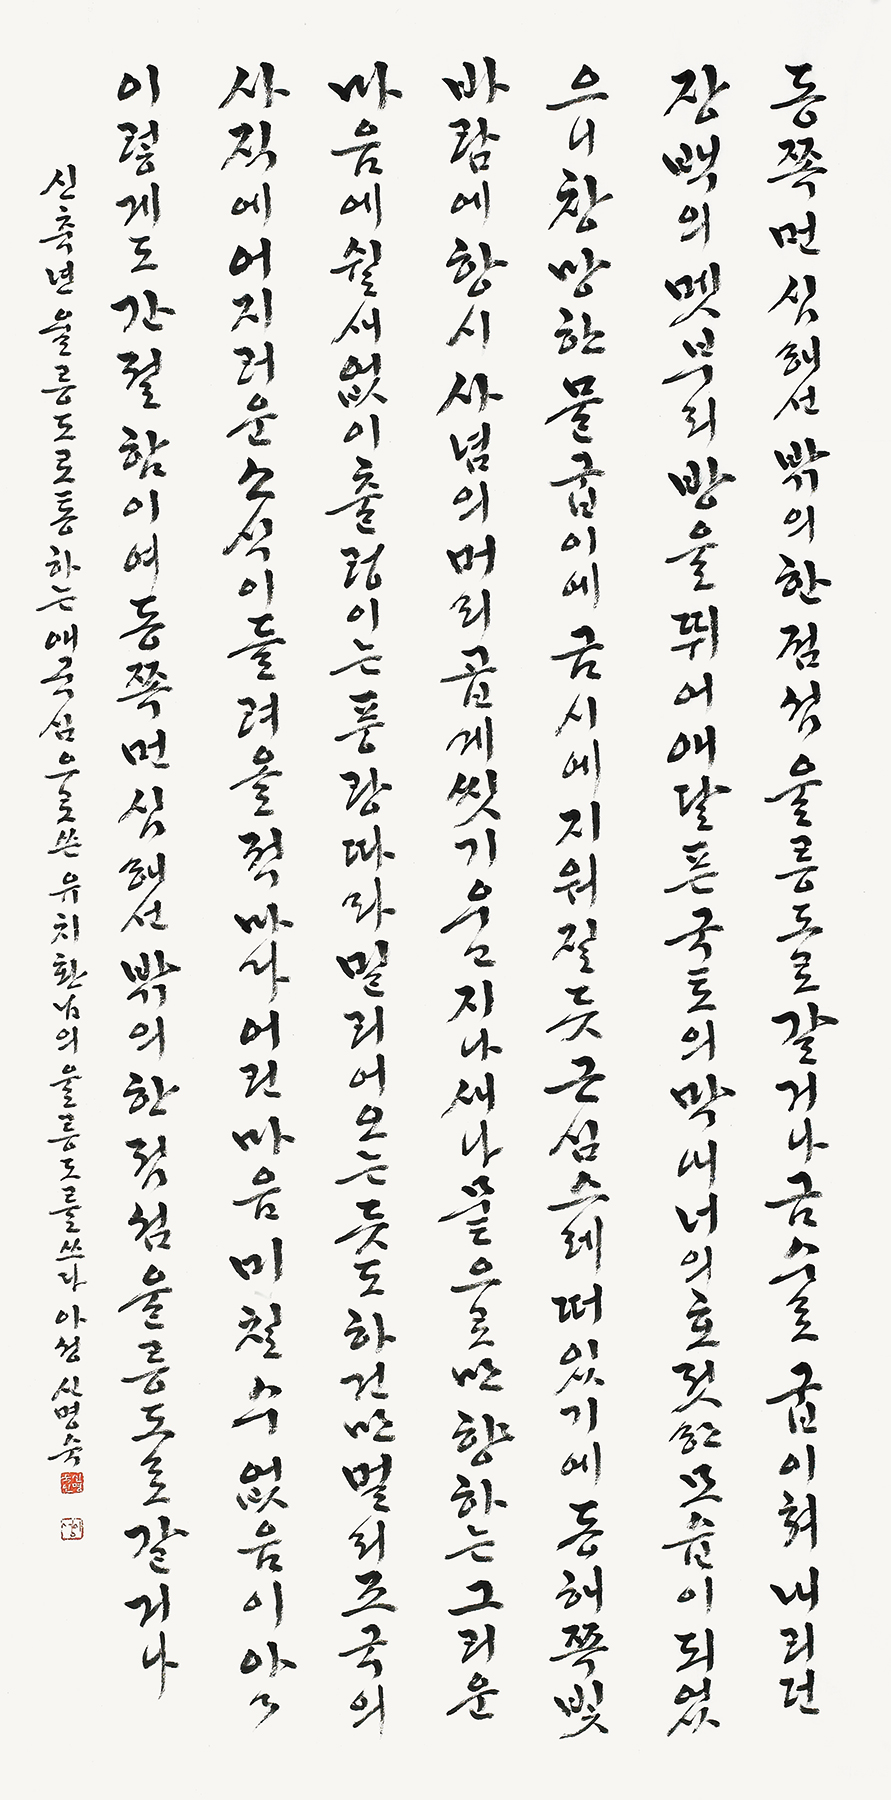 동쪽먼심해선밖의한점섬울릉도로갈거나금수로굽이쳐내리던
장백의멧부리방울뛰어애달픈국토의막내너의호젓한모습이되었
으니창망한물굽이에금시에지워질듯근심스레떠있기에동해쪽빛
바람에항시사념의머리곱게씻기우고지나새나뭍으로만향하는그리운
마음에쉴새없이출렁이는풍랑따라밀리어오는듯도하건만멀리조국의
사직에어지러운소식이들려올적마다어린마음미칠수없음이아〃
이렇게도간절함이여동쪽먼심해선밖의한점섬울릉도로갈거나
신축년울릉도로통하는애국심으로쓴유치환님의울릉도를쓰다아성신명숙